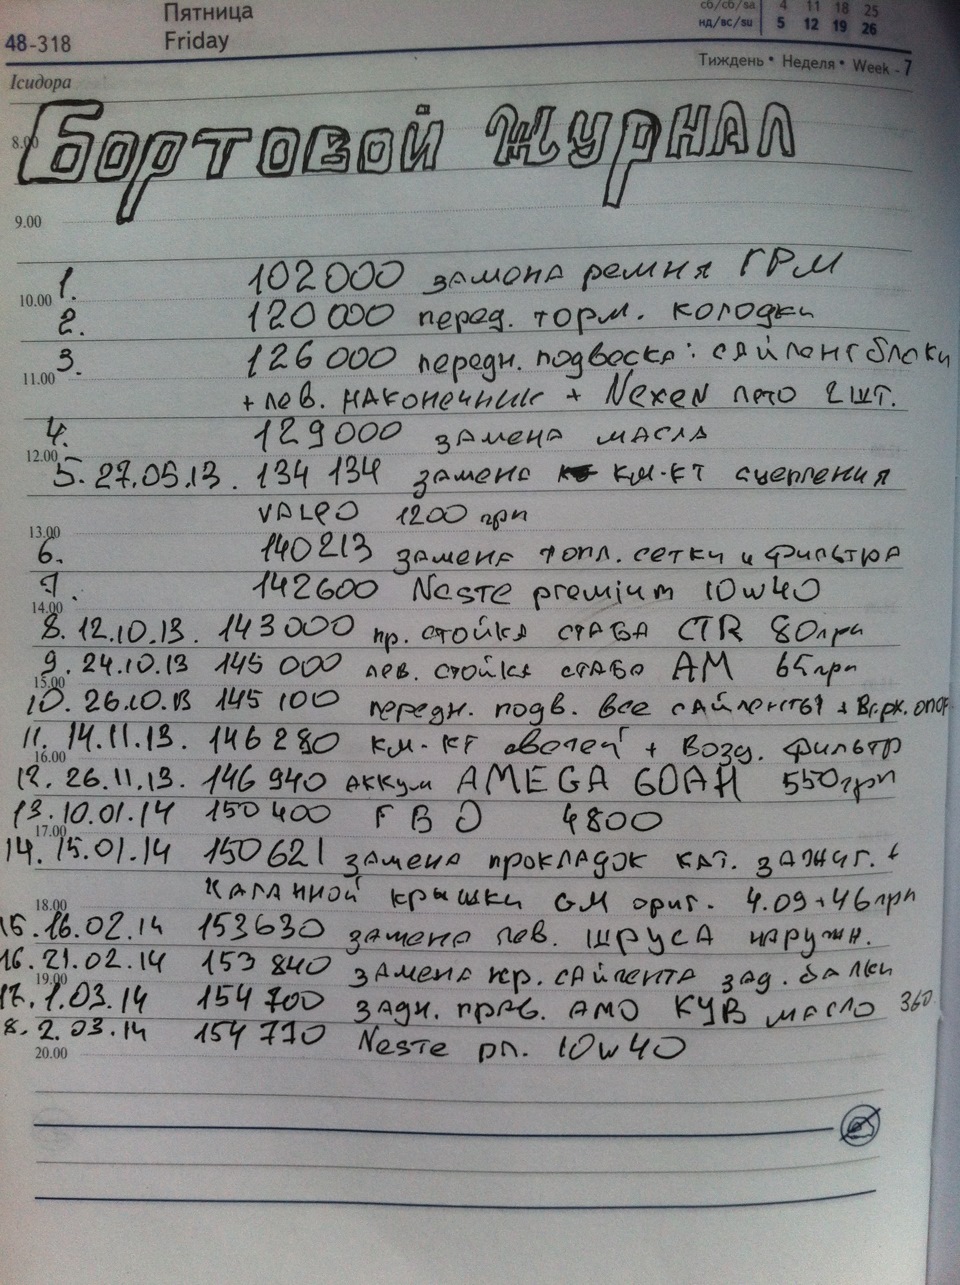 Пятница
Friday
48-318
сб/сб/sa 4 11 18 25
нд/вс/su 5 12 19 26
Тиждень • Неделя • Week - 7
Ісидора
Бортовой журнал
8.00
9.00
10.00
11.00
12.00
13.00
14.00
15.00
16.00
17.00
18.00
19.00
20.00
1. 102000 замена ремня ГРМ
2. 120000 перед. торм. колодки
3. 126000 передн. подвеска: сайлентблоки
+ лев. наконечник + Nexen лето 2шт.
4. 129000 замена масла
5. 27.05.13. 134 134 замена км-кт сцепления
VALEO 1200 грн
6. 140213 замена топл. сетки и фильтра
7. 142600 Neste premium 10w40
8. 12.10.13. 143000 пр. стойка стаба CTR 80грн
9. 24.10.13 145 000 лев. стойка стаба AM 65грн
10. 26.10.13 145 100 передн. подв. все сайленты +
11. 14.11.13. 146 280 км-кт свечей + возд. фильтр
12. 26.11.13. 146 940 аккум AMEGA 60AH 550грн
13. 10.01.14 150 400 ГБО 4800
14. 15.01.14 150 621 замена прокладок кат. зажиг. +
клапанной крышки GM ориг. 4.09+46грн
15. 16.02.14 153630 замена лев. шруса наружн.
16. 21.02.14 153 840 замена пр. сайлента зад. балки
17. 1.03.14 154 700 задн. прав. амо КУВ масло 360
8. 2.03.14 154 770 Neste pr. 10w40